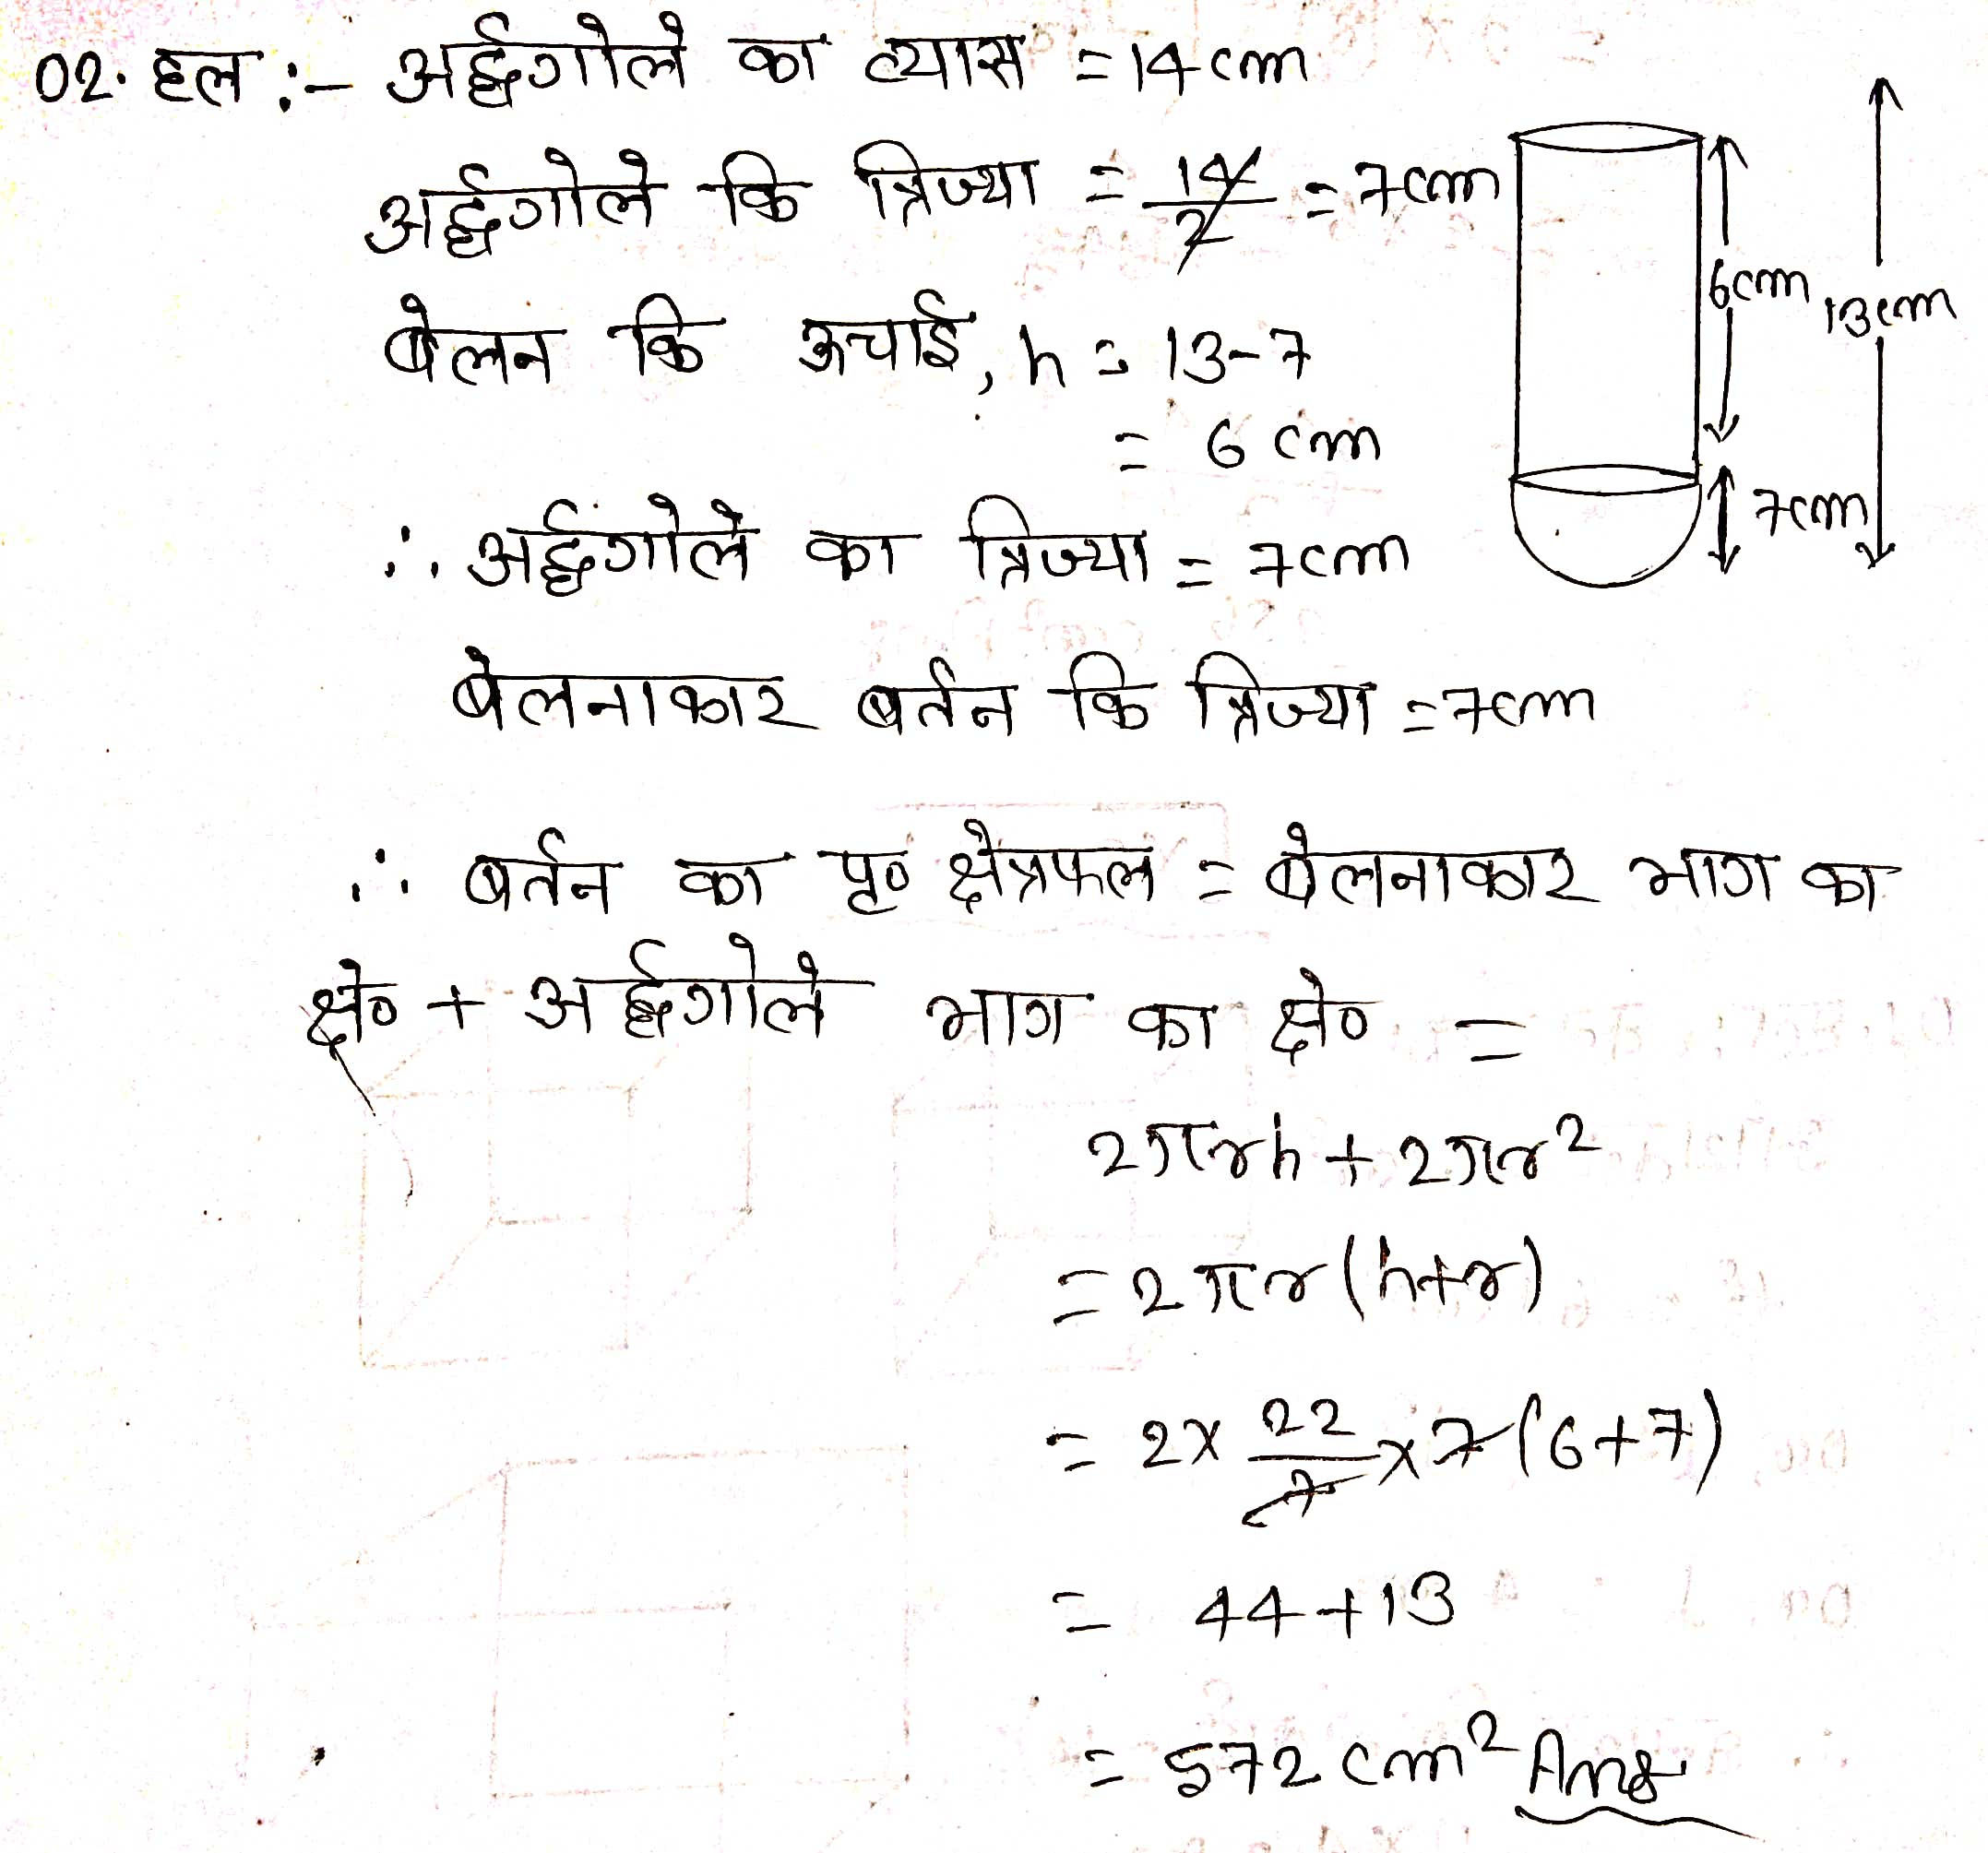 02. हल :- अर्द्धगोले का व्यास = 14 cm
अर्द्धगोले कि त्रिज्या = 14/2 = 7cm
बेलन कि ऊचाई, h = 13-7
= 6 cm
6cm
13cm
7cm
∴ अर्द्धगोले का त्रिज्या = 7cm
बेलनाकार बर्तन कि त्रिज्या = 7cm
∴ बर्तन का पृ० क्षेत्रफल = बेलनाकार भाग का
क्षे० + अर्द्धगोले भाग का क्षे० =
2πrh + 2πr²
= 2πr(h+r)
= 2x 22/7 x 7(6+7)
= 44+13
= 572 cm² Ans